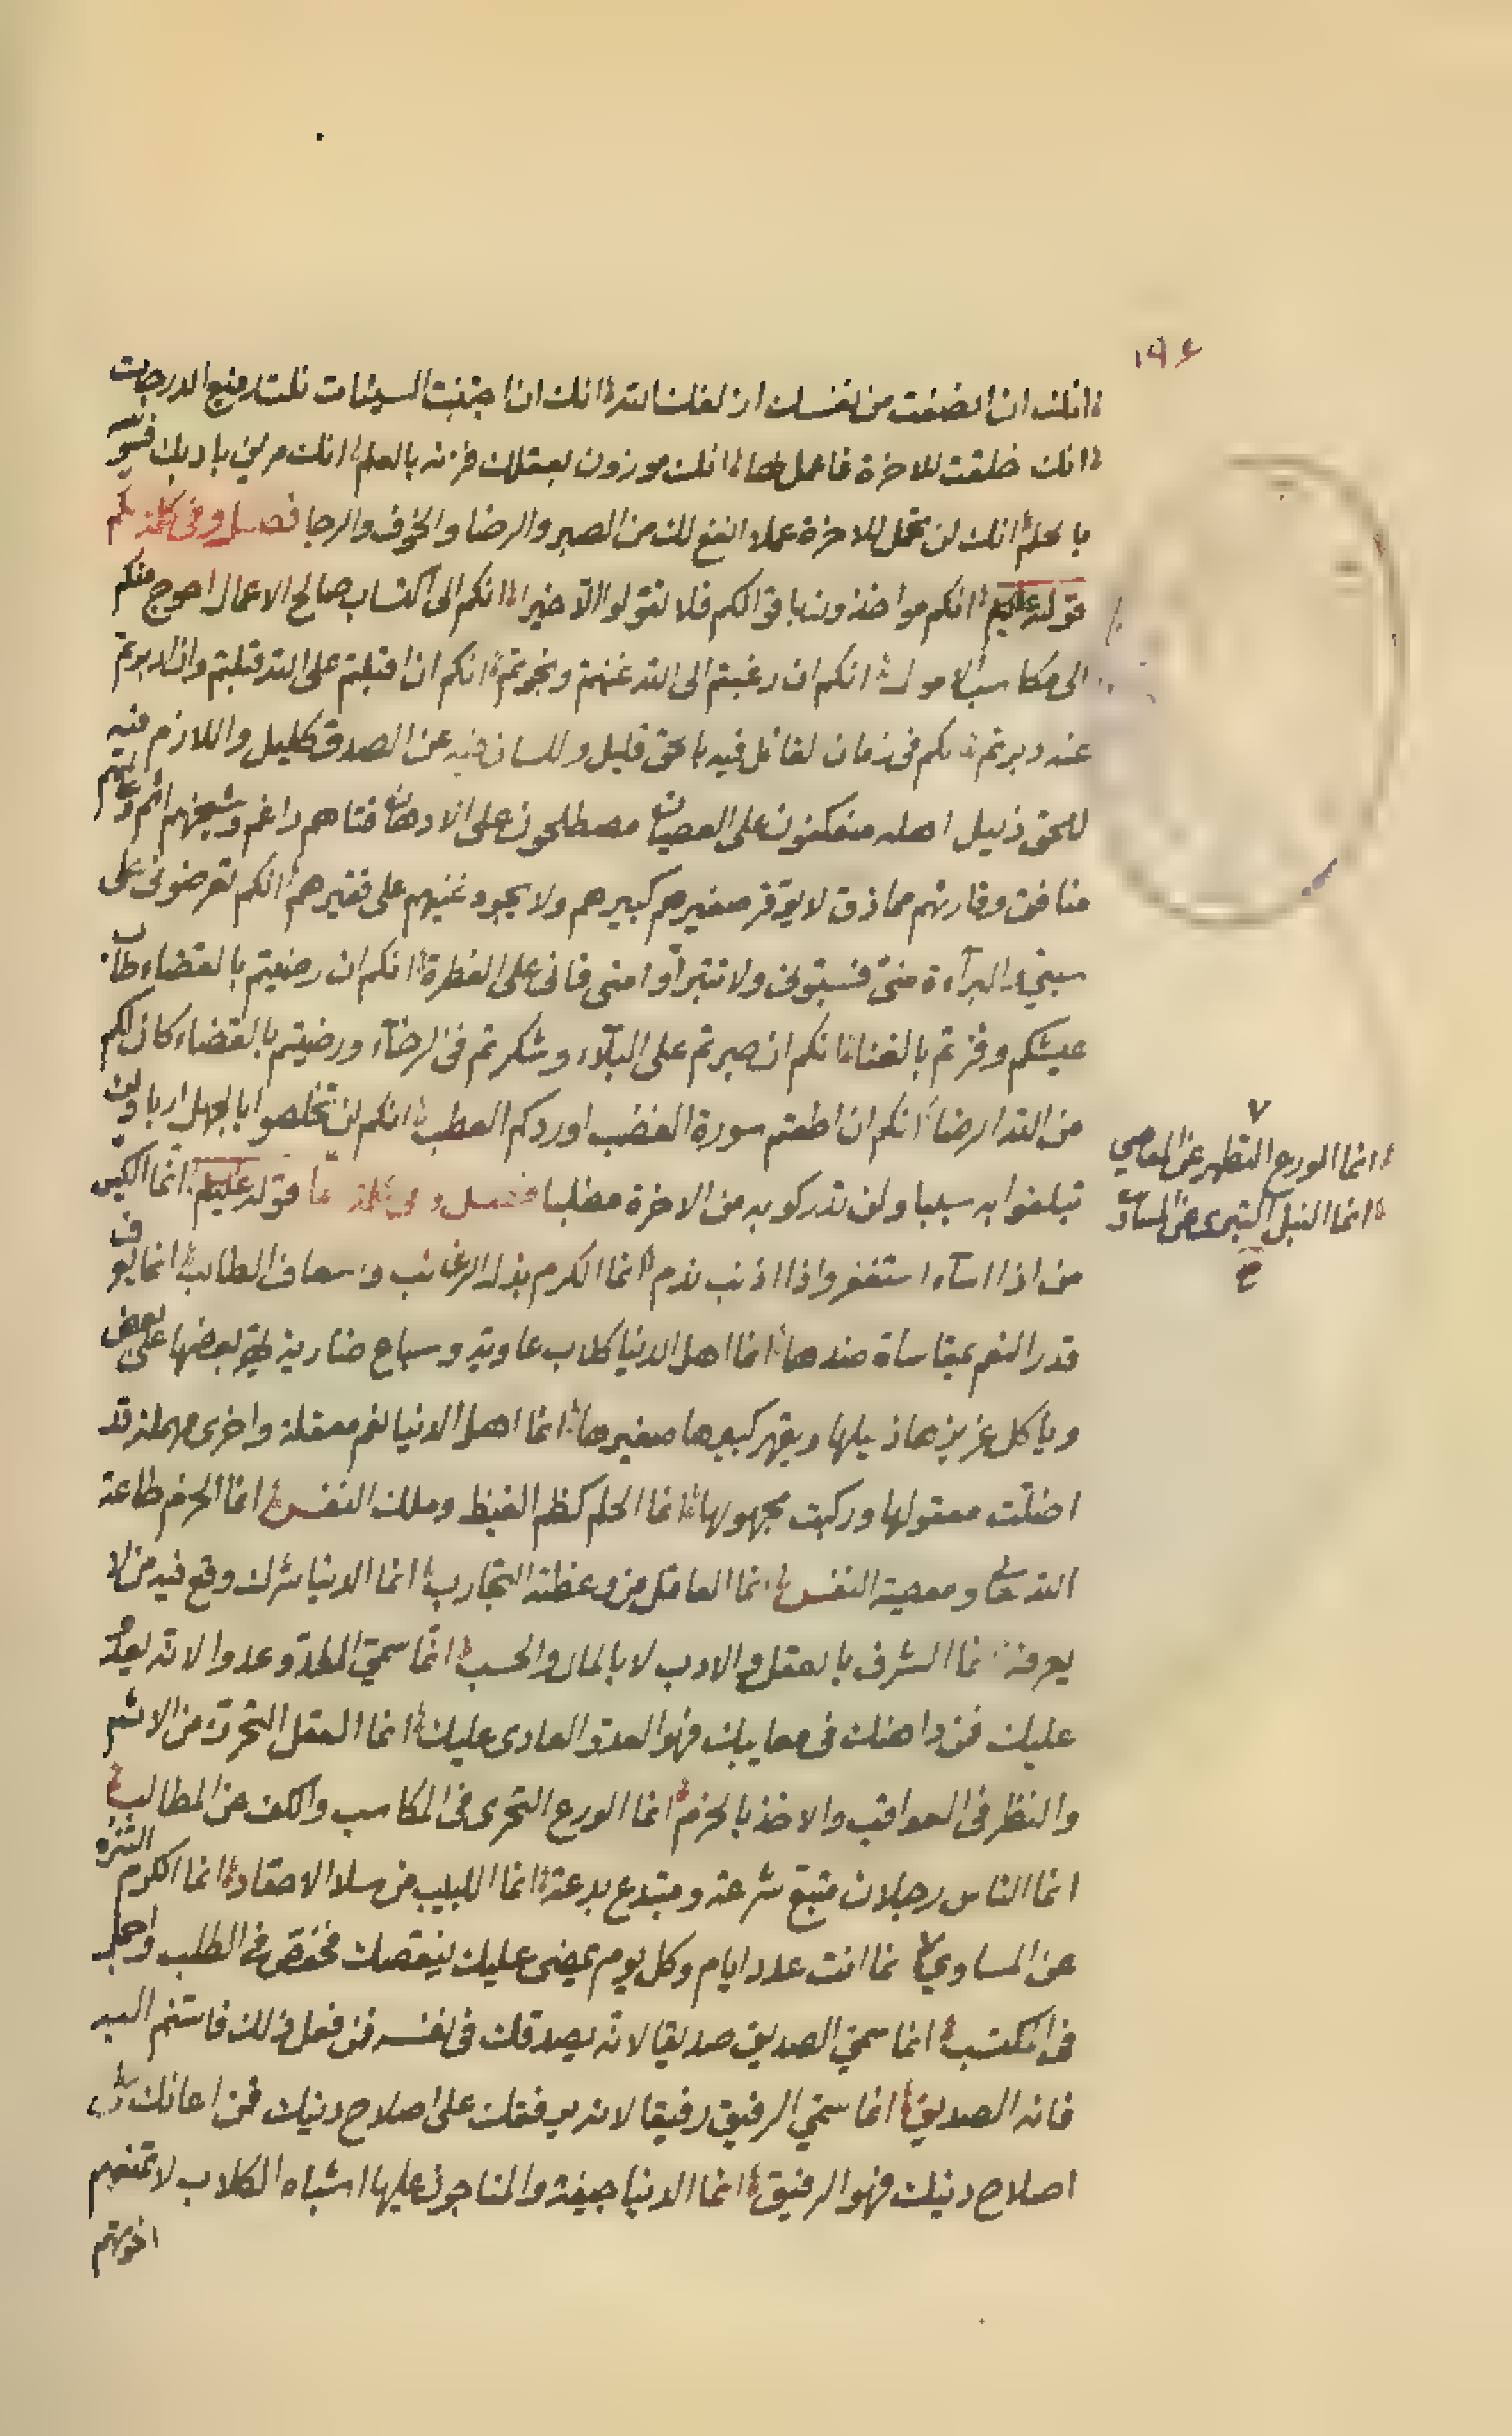 ١٩٤
انك ان انصفت من نفسك ازلفك الله انك ان اجتنبت السيئات نلت رفيع الدرجات
انك خلقت للاخرة فاعمل لها انك موزون بعقلك فزنه بالعلم انك مزين بادبك فزينه
بالحلم انك لن تحمل للاخرة عملا انفع لك من الصبر والرضا والخوف والرجا فصل وفى كلمة انكم
قوله عليه انكم مواخذون باقوالكم فلا تقولوا الا خيرا انكم الى اكتساب صالح الاعمال احوج منكم
الى مكاسب الاموال انكم ان رغبتم الى الله غنمتم ونجوتم انكم ان اقبلتم على الله قبلتم وان ادبرتم
عنه دبرتم انكم فى زمان القائل فيه بالحق قليل واللسان فيه عن الصدق كليل واللازم فيه
للحق ذليل اهله منعكفون على العصيان مصطلحون على الادهان فتاهم داغم وشيخهم اثم وعالمهم
منافق وقاريهم مماذق لا يوقر صغيرهم كبيرهم ولا يجود غنيهم على فقيرهم انكم تعرضون على
سبى والبرآءة منى فسبونى ولا تتبرأوا منى فانى على الفطرة انكم ان رضيتم بالقضاء طاب
عيشكم وفزتم بالغنا انكم ان صبرتم على البلآء وشكرتم فى الرخآء ورضيتم بالقضاء كان لكم
من الله الرضا انكم ان اطعتم سورة الغضب اوردكم العطب انكم لن تخلصوا بالجهل اربا ولن
تبلغوا به سببا ولن تدركوا به من الاخرة مطلبا فصل وفى كلمة انما قوله عليه انما الكيس
من اذا اسآء استغفر واذا اذنب ندم انما الكرم بذل الرغائب واسعاف الطالب انما يعرف
قدر النعم بمقاساة ضدها انما اهل الدنيا كلاب عاوية وسباع ضارية يهر بعضها على بعض
وياكل عزيزها ذليلها ويقهر كبيرها صغيرها انما اهل الدنيا نعم معقلة واخرى مهملة قد
اضلت معقولها وركبت مجهولها انما الحلم كظم الغيظ وملك النفس انما الحزم طاعة
الله تعالى ومعصية النفس انما العاقل من وعظته التجارب انما الدنيا شرك وقع فيه من لا
يعرفه انما الشرف بالعقل والادب لا بالمال والحسب انما سمى العدو عدوا لانه يعدو
عليك فمن داهنك فى معايبك فهو العدو العادى عليك انما العقل التحرز من الاثم
والنظر فى العواقب والاخذ بالحزم انما الورع التحرى فى المكاسب والكف عن المطالب
انما الناس رجلان متبع شرعة ومبتدع بدعة انما اللبيب من سلا الاحقاد انما الكرم التنزه
عن المساوى انما انت عدد ايام وكل يوم يمضى عليك ينقصك فخفض فى الطلب واجمل
فى المكتسب انما سمى الصديق صديقا لانه يصدقك فى نفسه فمن فعل ذلك فاستنم اليه
فانه الصديق انما سمى الرفيق رفيقا لانه يرفقك على اصلاح دينك فمن اعانك على
اصلاح دينك فهو الرفيق انما الدنيا جيفة والمتاجون عليها اشباه الكلاب لا تمنعهم
اخوتهم
انما الورع التطهر عن المعاصى
انما النبل التبرى عن المساوى